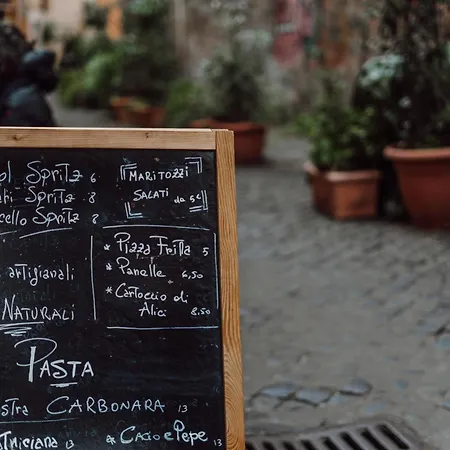 Spritz 6
Spritz 8
Spritz 8
MARITOZZI
SALATI da 5€
artigianali
NATURALI
* Pizza Fritta 5
* Panelle 6,50
* Cartoccio di
Alici 8.50
PASTA
CARBONARA 13
13
* Cacio e Pepe 13